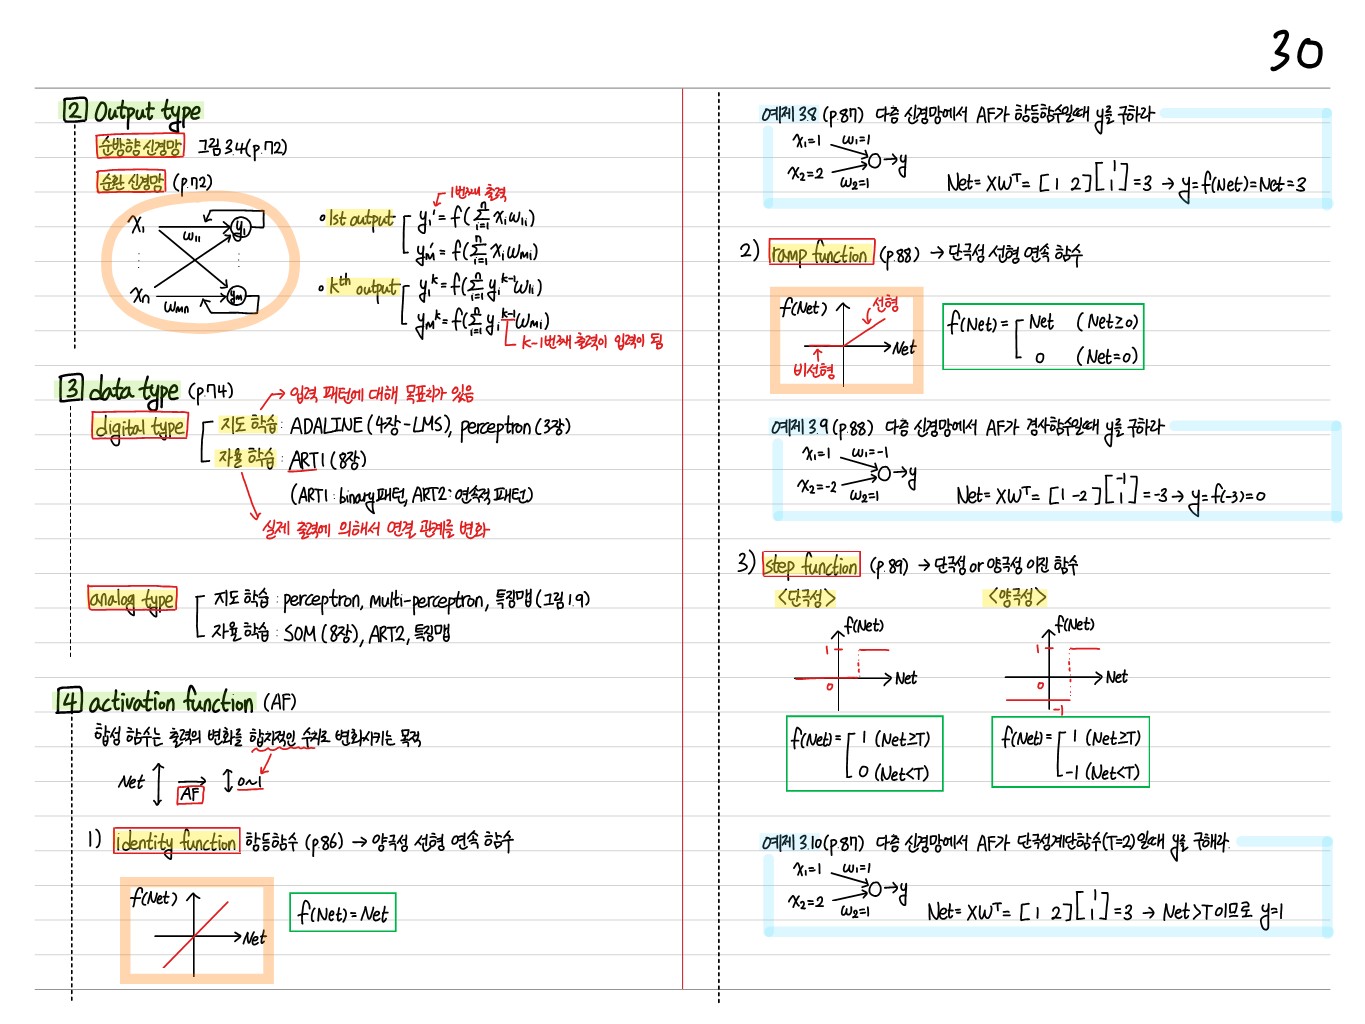 30
2 Output type
순방향 신경망 그림 3.4(p.72)
순환 신경망 (p.72)
x₁ w₁₁ y₁
xn wmn ym
1번째 출력
• 1st output y₁' = f(Σⁿᵢ₌₁ xᵢw₁ᵢ)
yₘ' = f(Σⁿᵢ₌₁ xᵢwₘᵢ)
• kᵗʰ output y₁ᵏ = f(Σⁿᵢ₌₁ yᵢᵏ⁻¹w₁ᵢ)
yₘᵏ = f(Σⁿᵢ₌₁ yᵢᵏ⁻¹wₘᵢ)
k-1번째 출력이 입력이 됨
3 data type (p.74)
→ 입력 패턴에 대해 목표치가 있음
digital type 지도 학습 : ADALINE (4장-LMS), perceptron (3장)
자율 학습 : ART1 (8장)
(ART1 : binary패턴, ART2 : 연속적 패턴)
실제 출력에 의해서 연결 관계를 변화
analog type 지도 학습 : perceptron, multi-perceptron, 특징맵 (그림 1.9)
자율 학습 : SOM (8장), ART2, 특징맵
4 activation function (AF)
합성 함수는 출력의 변화를 합리적인 수치로 변화시키는 목적
Net ↕ → AF ↕ 0~1
1) identity function 항등함수 (p.86) → 양극성 선형 연속 함수
f(Net) Net
f(Net) = Net
예제 3.8 (p.87) 다층 신경망에서 AF가 항등함수일때 y를 구하라
x₁=1 w₁=1
x₂=2 w₂=1 → y
Net = XWᵀ = [1 2][1 1] = 3 → y = f(Net) = Net = 3
2) ramp function (p.88) → 단극성 선형 연속 함수
f(Net) 선형 Net
비선형
f(Net) = Net (Net≥0)
0 (Net=0)
예제 3.9 (p.88) 다층 신경망에서 AF가 경사함수일때 y를 구하라
x₁=1 w₁=-1
x₂=-2 w₂=1 → y
Net = XWᵀ = [1 -2][-1 1] = -3 → y = f(-3) = 0
3) step function (p.89) → 단극성 or 양극성 이진 함수
<단극성> <양극성>
f(Net) 1 0 Net
f(Net) 1 0 -1 Net
f(Net) = 1 (Net≥T)
0 (Net<T)
f(Net) = 1 (Net≥T)
-1 (Net<T)
예제 3.10 (p.87) 다층 신경망에서 AF가 단극성계단함수(T=2)일때 y를 구해라.
x₁=1 w₁=1
x₂=2 w₂=1 → y
Net = XWᵀ = [1 2][1 1] = 3 → Net>T이므로 y=1